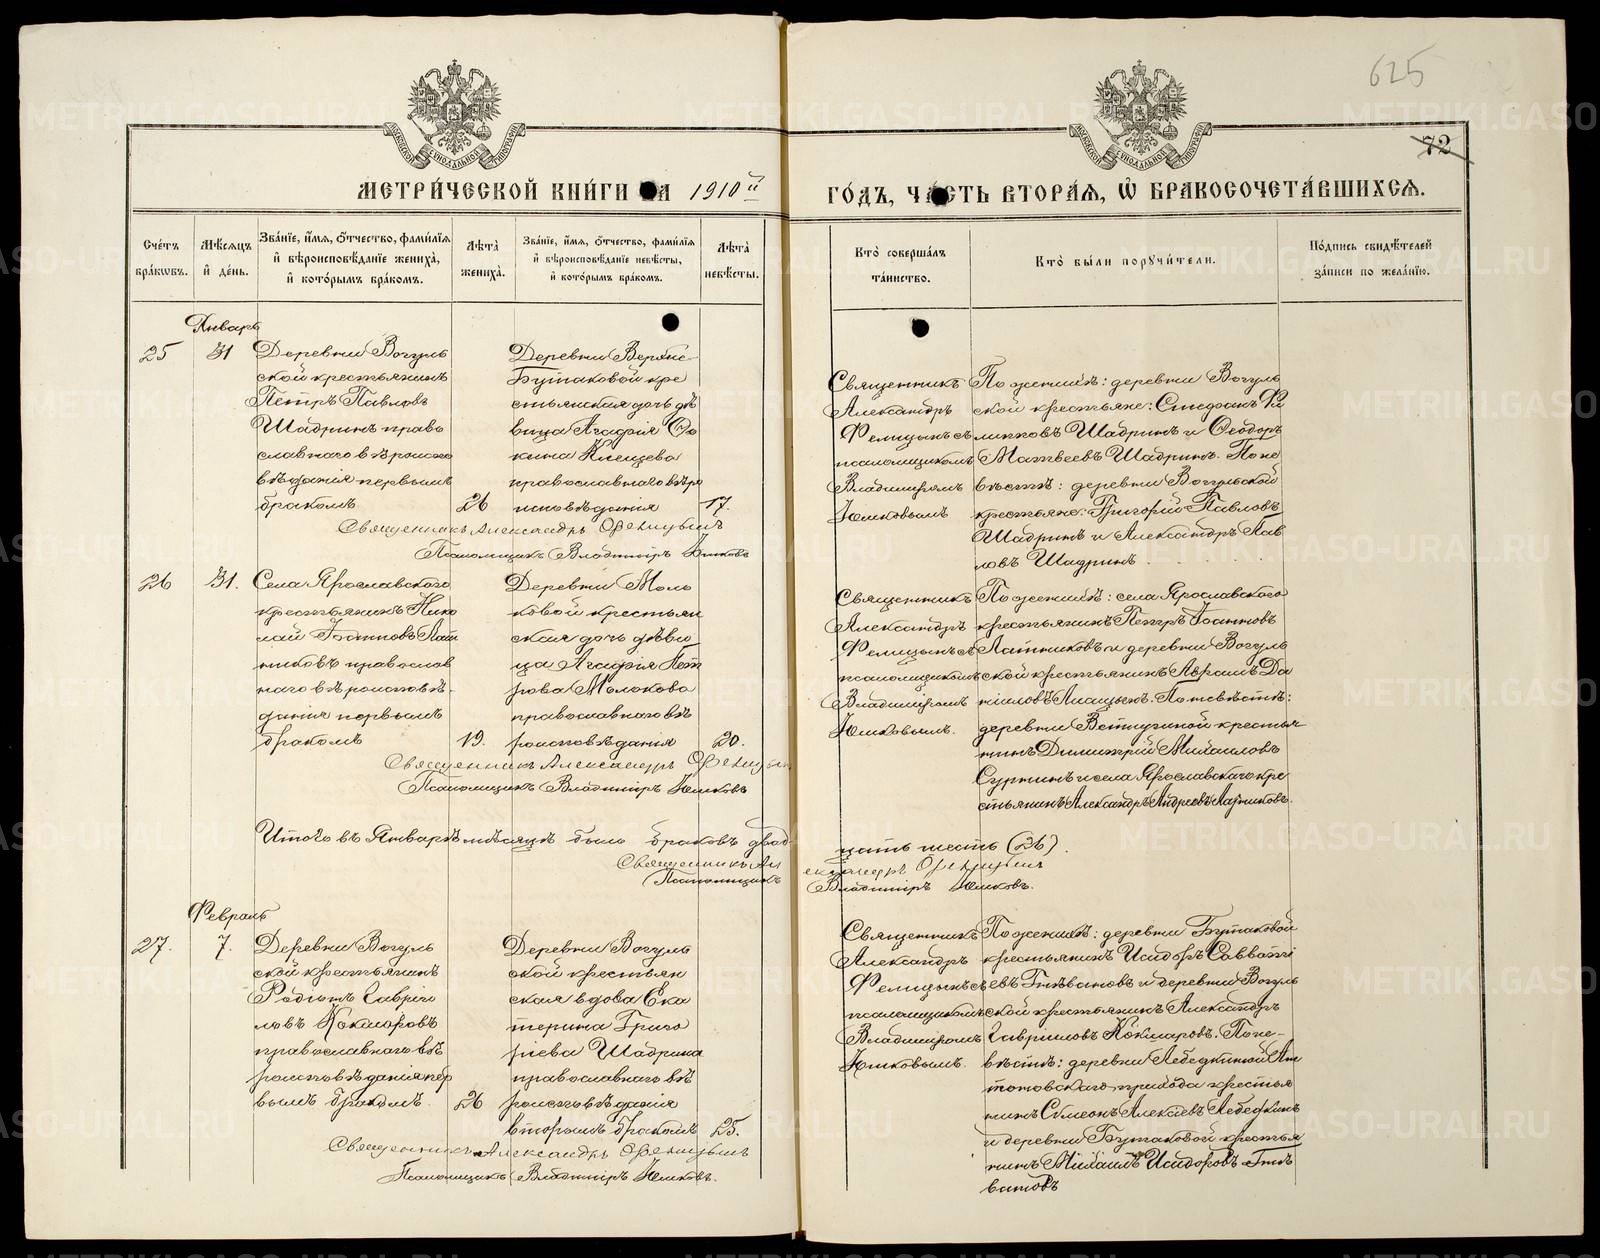 625
72
МЕТРИЧЕСКОЙ КНИГИ НА 1910й
ГОДЪ, ЧАСТЬ ВТОРАЯ, Ѽ БРАКОСОЧЕТАВШИХСЯ.
Счетъ браковъ.
Мѣсяцъ и день.
Званіе, имя, отчество, фамилія и вѣроисповѣданіе жениха, и которымъ бракомъ.
Лѣта жениха.
Званіе, имя, отчество, фамилія и вѣроисповѣданіе невѣсты, и которымъ бракомъ.
Лѣта невѣсты.
Кто совершалъ таинство.
Кто были поручители.
Подпись свидѣтелей записи по желанію.
Январь
25
31
Деревни Вогуль
ской крестьянинъ
Петръ Павловъ
Шадринъ право
славнаго вѣроиспо
вѣданія первымъ
бракомъ
26
Деревни Верхне-
Бутаковой кре
стьянская дочь дѣ
вица Агафія Ѳо
кина Клещева
православнаго вѣро
исповѣданія
17.
Священникъ Александръ Фелицынъ
Псаломщикъ Владиміръ Юшковъ
Священникъ
Александръ
Фелицынъ съ
псаломщикомъ
Владиміромъ
Юшковымъ
По женихѣ: деревни Вогуль
ской крестьяне: Стефанъ Фи
липповъ Шадринъ и Ѳеодоръ
Матвеевъ Шадринъ. По не
вѣстѣ: деревни Вогульской
крестьяне: Григорій Павловъ
Шадринъ и Александръ Пав
ловъ Шадринъ
26
31.
Села Ярославскаго
крестьянинъ Нико
лай Іоанновъ Лат
никовъ православ
наго вѣроисповѣ-
данія первымъ
бракомъ
19.
Деревни Моло
ковой крестьян
ская дочь дѣви
ца Агафія Пет
рова Молокова
православнаго вѣ
роисповѣданія
20.
Священникъ Александръ Фелицынъ
Псаломщикъ Владиміръ Юшковъ
Священникъ
Александръ
Фелицынъ съ
псаломщикомъ
Владиміромъ
Юшковымъ.
По женихѣ: села Ярославскаго
крестьянинъ Петръ Іоанновъ
Латниковъ и деревни Вогуль
ской крестьянинъ Аврамъ Да
ниловъ По невѣстѣ:
деревни крестья
нинъ Димитрій Михаиловъ
Суртинъ и села Ярославскаго кре
стьянинъ Александръ Андреевъ Латниковъ.
Итого въ Январѣ мѣсяцѣ было браковъ двад
цать шесть (26).
Священникъ Ал
ександръ Фелицынъ
Псаломщикъ
Владиміръ Юшковъ.
Февраль
27.
7.
Деревни Вогуль
ской крестьянинъ
Родіонъ Гаврiи
ловъ Кокшаровъ
православнаго вѣ
роисповѣданія пер
вымъ бракомъ
26
Деревни Вогуль
ской крестьян
ская вдова Ека
терина Григо
ріева Шадрина
православнаго вѣ
роисповѣданія
вторымъ бракомъ
25.
Священникъ Александръ Фелицынъ
Псаломщикъ Владиміръ Юшковъ.
Священникъ
Александръ
Фелицынъ съ
псаломщикомъ
Владиміромъ
Юшковымъ.
По женихѣ: деревни Бутаковой
крестьянинъ Исидоръ Савваті
евъ Гнѣвановъ и деревни Вогуль
ской крестьянинъ Александръ
Гавриловъ Кокшаровъ. По не-
вѣстѣ: деревни Лебедкиной Ан
тоновскаго прихода крестья
нинъ Симеонъ Алексіевъ Лебедкинъ
и деревни Бутаковой крестья
нинъ Михаилъ Исидоровъ Гнѣ
вановъ